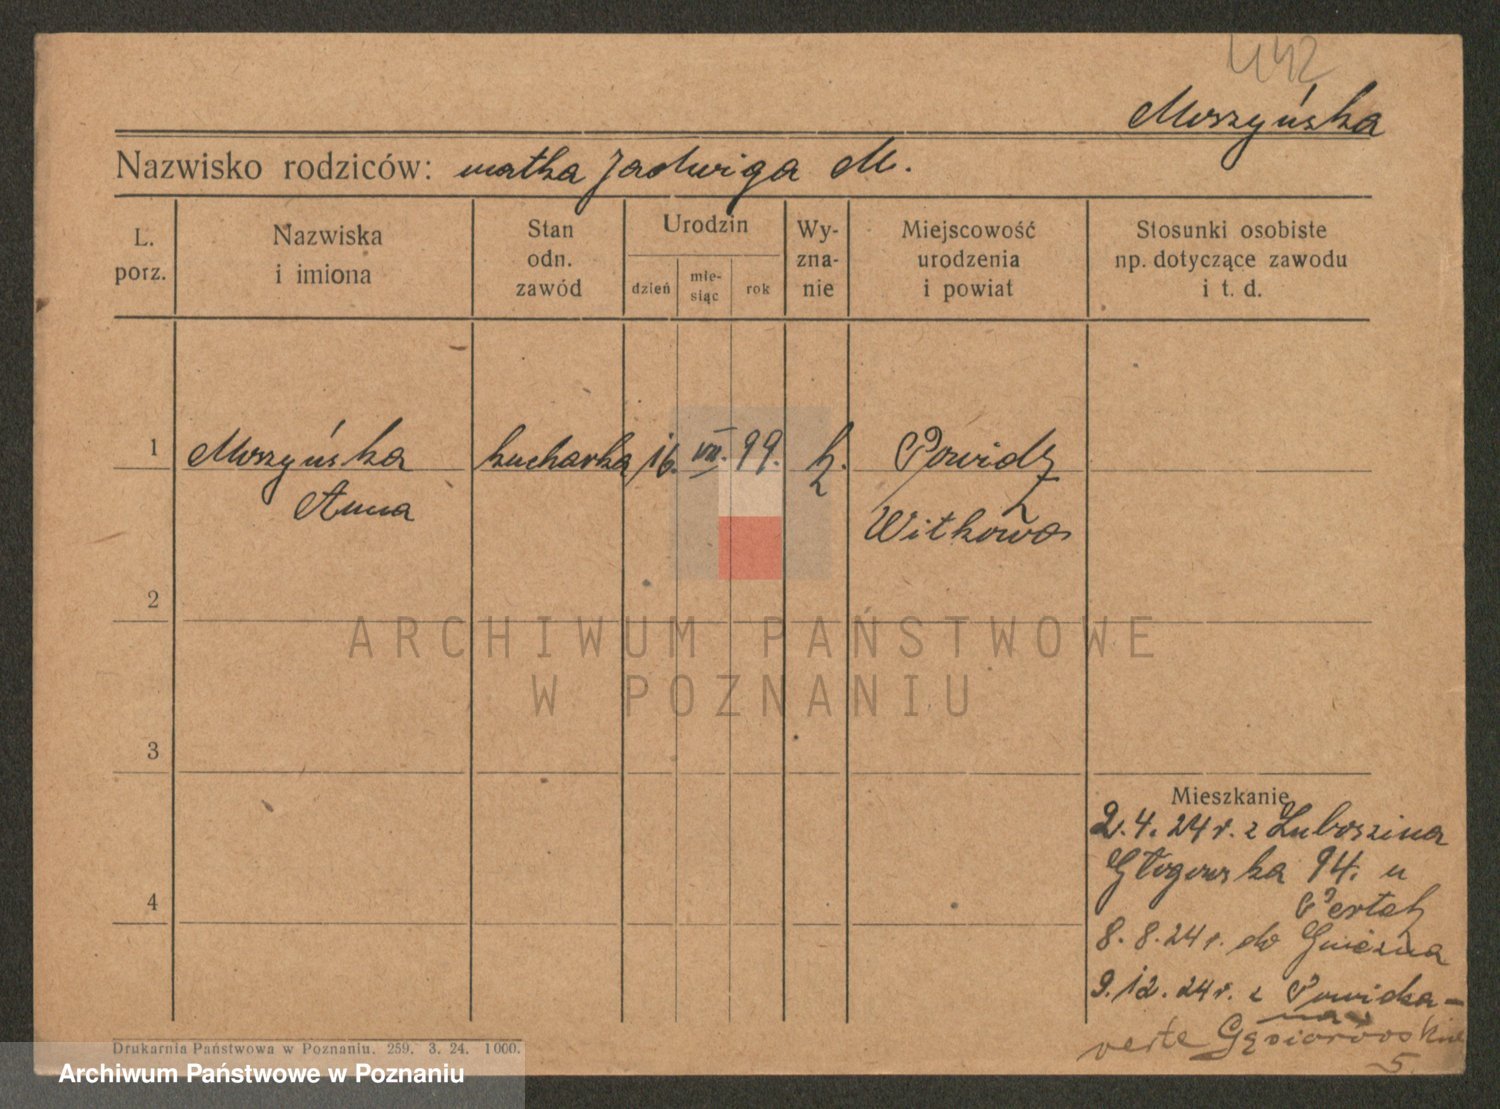 442
Moszyńska
Nazwisko rodziców: matka Jadwiga M.
L. porz.
Nazwiska i imiona
Stan odn. zawód
Urodzin
dzień
mie-siąc
rok
Wy-zna-nie
Miejscowość urodzenia i powiat
Stosunki osobiste np. dotyczące zawodu i t. d.
1 Moszyńska kucharka 16. VII. 99. k. Powidz
Anna Witkowo
2
ARCHIWUM PAŃSTWOWE
W POZNANIU
3
Mieszkanie
2.4.24 r. z Luboszina
4
Głogowska 94. u
Pertek
8.8.24 r. do Gniezna
9.12.24 r. z
verte Gąsiorowskich
5.
Drukarnia Państwowa w Poznaniu. 259. 3. 24. 1000.
Archiwum Państwowe w Poznaniu